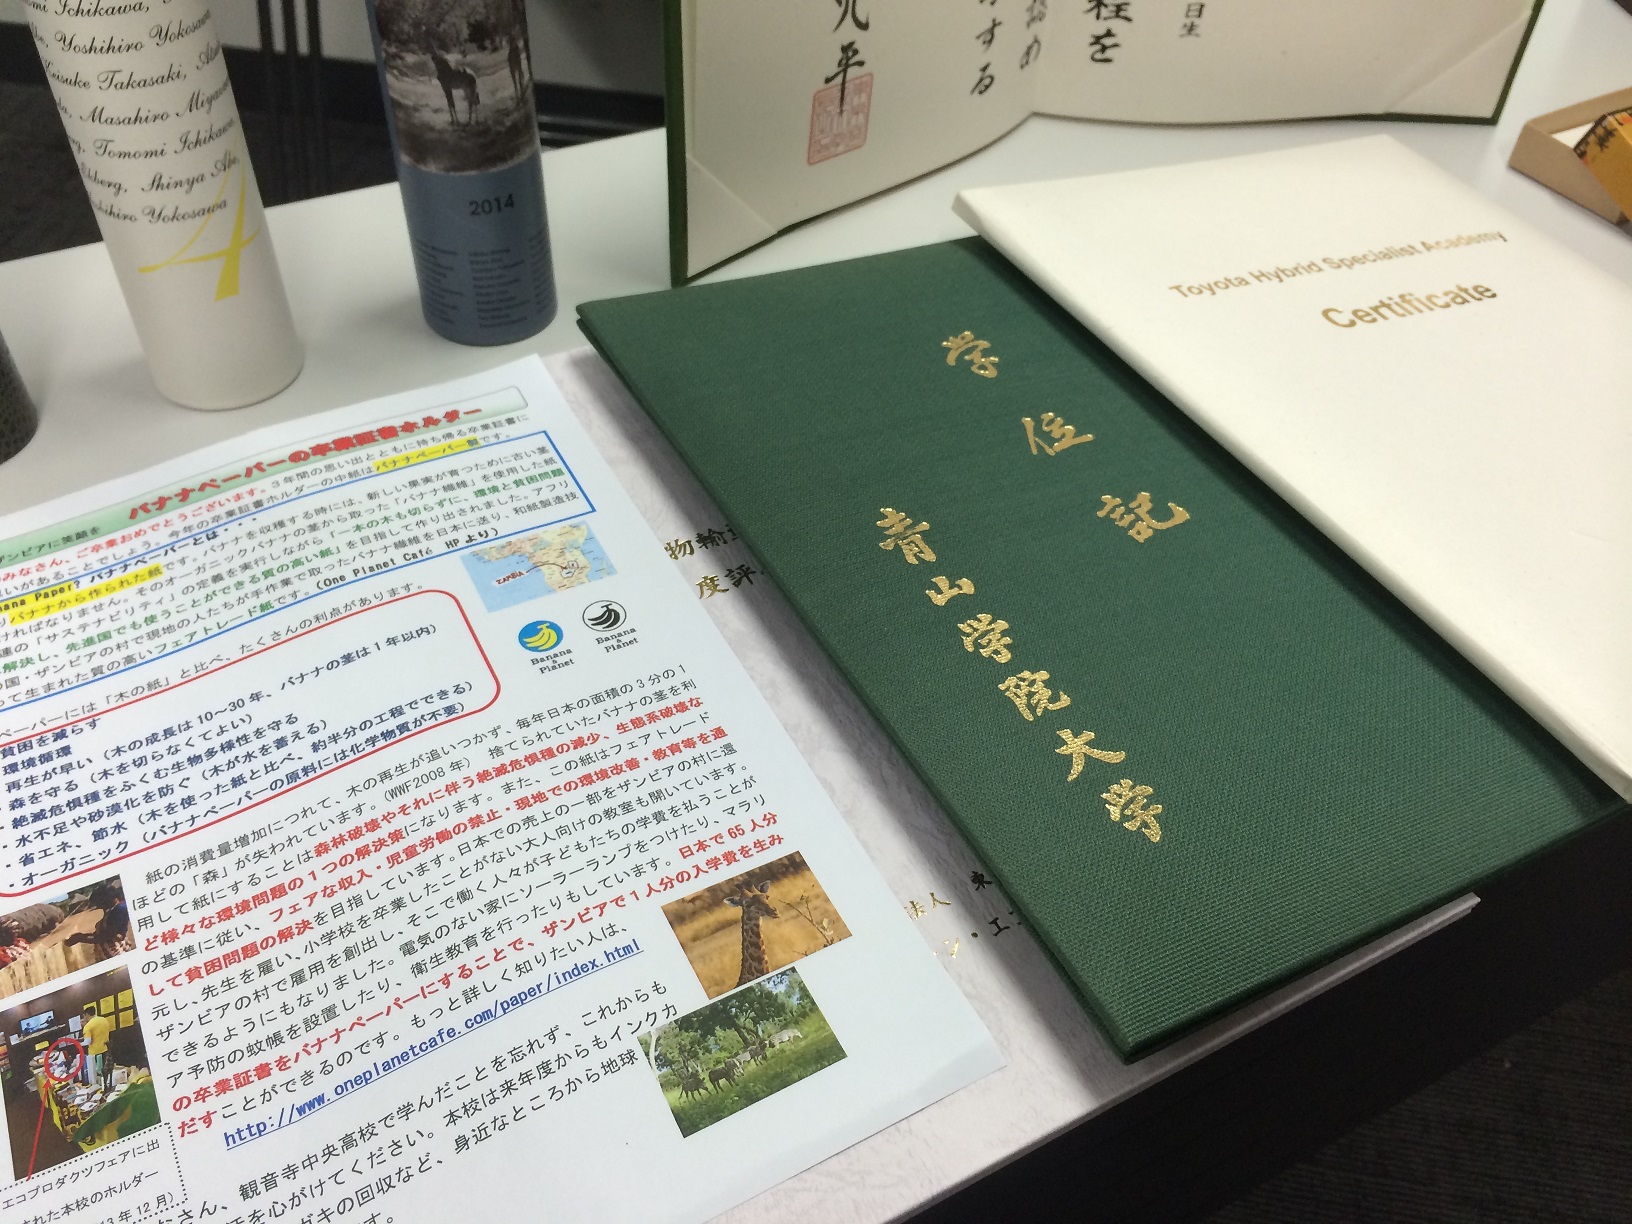 mi Ichikawa,
Yoshihiro Yokosawa
Keisuke Takasaki,
Masahiro Miyag
Tomomi Ichikawa
kberg, Shinya Abe,
Yoshihiro Yokosawa
4
2014
平
する
程を
日生
Toyota Hybrid Specialist Academy
Certificate
学位記
青山学院大学
物輸
度評
法人 東
バナナペーパーの卒業証書ホルダー
ザンビアに笑顔を
みなさん、ご卒業おめでとうございます。3年間の思い出とともに持ち帰る卒業証書に
いがあることでしょう。今年の卒業証書ホルダーの中紙はバナナペーパー製です。
ana Paper? バナナペーパーとは・・・・
バナナから作られた紙です。バナナを収穫する時には、新しい果実が育つために古い茎
ければなりません。そのオーガニックバナナの茎から取った「バナナ繊維」を使用した紙
連の「サステナビリティ」の定義を実行しながら「一本の木も切らずに、環境と貧困問題
解決し、先進国でも使うことができる質の高い紙」を目指して作り出されました。アフリ
の国・ザンビアの村で現地の人たちが手作業で取ったバナナ繊維を日本に送り、和紙製造技
って生まれた質の高いフェアトレード紙です。(One Planet Café HPより)
ZAMBIA
Banana & Planet
Banana & Planet
ペーパーには「木の紙」と比べ、たくさんの利点があります。
貧困を減らす
環境循環
再生が早い(木の成長は10~30年、バナナの茎は1年以内)
・森を守る(木を切らなくてよい)
・絶滅危惧種をふくむ生物多様性を守る
・水不足や砂漠化を防ぐ(木が水を蓄える)
・省エネ、節水(木を使った紙と比べ、約半分の工程でできる)
・オーガニック(バナナペーパーの原料には化学物質が不要)
紙の消費量増加につれて、木の再生が追いつかず、毎年日本の面積の3分の1
ほどの「森」が失われています。(WWF2008年) 捨てられていたバナナの茎を利
用して紙にすることは森林破壊やそれに伴う絶滅危惧種の減少、生態系破壊な
ど様々な環境問題の1つの解決策になります。また、この紙はフェアトレード
の基準に従い、フェアな収入・児童労働の禁止・現地での環境改善・教育等を通
して貧困問題の解決を目指しています。日本での売上の一部をザンビアの村に還
元し、先生を雇い、小学校を卒業したことがない大人向けの教室も開いています。
ザンビアの村で雇用を創出し、そこで働く人々が子どもたちの学費を払うことが
できるようにもなりました。電気のない家にソーラーランプをつけたり、マラリ
ア予防の蚊帳を設置したり、衛生教育を行ったりもしています。日本で65人分
の卒業証書をバナナペーパーにすることで、ザンビアで1人分の入学費を生み
だすことができるのです。もっと詳しく知りたい人は、
http://www.oneplanetcafe.com/paper/index.html
さん、観音寺中央高校で学んだことを忘れず、これからも
を心がけてください。本校は来年度からもインクカ
ガキの回収など、身近なところから地球
す。
エコプロダクツフェアに出
された本校のホルダー
13年12月)